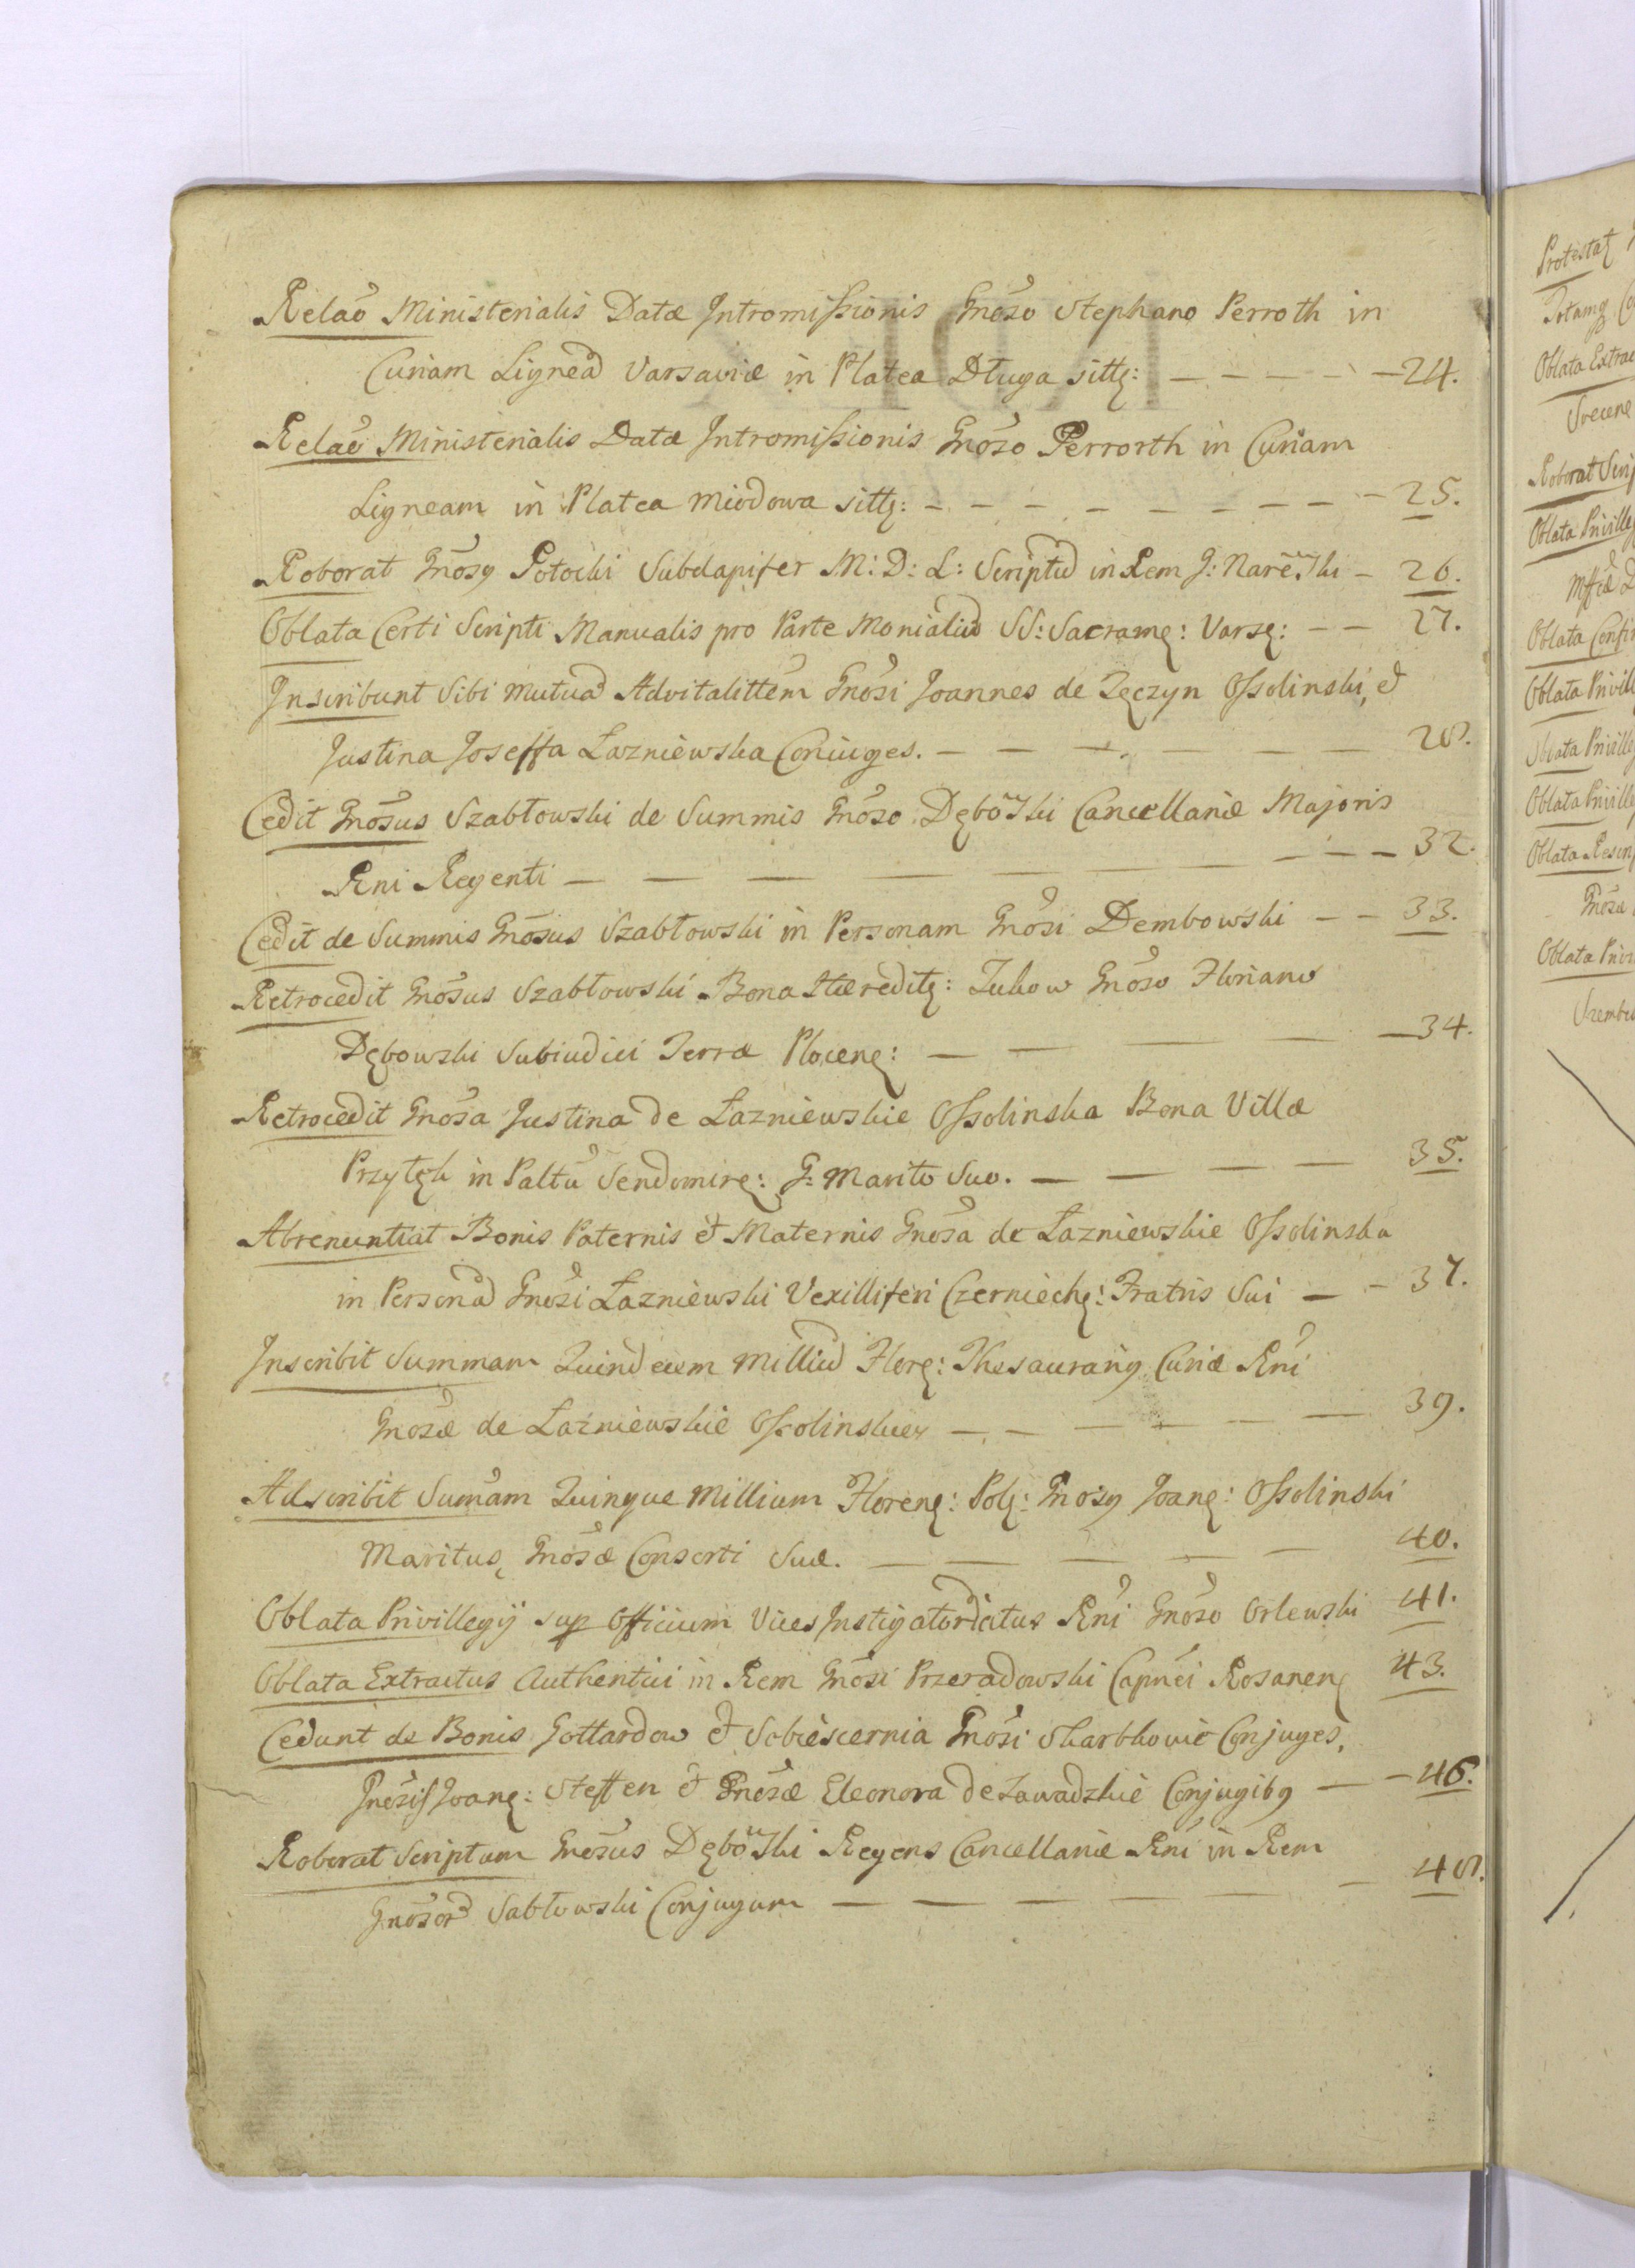 Relaõ Ministerialis Datæ Intromissionis Gnõso Stephano Perroth in
Curiam Ligneã Varsaviæ in Platea Długa sittę: — — — — — 24.
Relaõ Ministerialis Datæ Intromissionis Gnõso Perrorth in Curiam
Ligneam in Platea Miodowa sittę: — — — — — — — — 25.
Roborat Gnõsy Potocki Subdapifer M: D: L: Scriptũ in Rem G: — 26.
Oblata Certi Scripti Manualis pro Parte Monialiũ SS: Sacramę: Varsę: — — 27.
Inscribunt Sibi mutuã Advitalittẽm Gnõsi Joannes de Tęczyn Ossolinski, et
Justina Joseffa Łazniewska Coniuges. — — — — — — 28.
Cedit Gnõsus Szabłowski de Summis Gnõso Dębõski Cancellariæ Majoris
Rni Regenti — — — — — — — — — 32.
Cedit de Summis Gnõsus Szabłowski in Personam Gnõsi Dembowski — — 33.
Retrocedit Gnõsus Szabłowski Bona Hæreditę: Gnõso Floriano
Dębowski Subiudici Terræ Plocenę: — — — — — 34.
Retrocedit Gnõsa Justina de Łazniewskie Ossolinska Bona Villæ
Przytęk in Paltũ Sendomirę: G: Marito Suo. — — — — 35.
Abrenuntiat Bonis Paternis et Maternis Gnõsa de Łazniewskie Ossolinska
in Personã Gnõsi Łazniewski Vexilliferi Czerniechę: Fratris Sui — — 37.
Inscribit Summam Quindecem Milliũ Florę: Thesaurariy Curiæ Rñi
Gnõsæ de Łazniewskie Ossolinskiey — — — — — 39.
Adscribit Sumãm Quinque Millium Florenę: Polę: Gnõsy Joanę: Ossolinski
Maritus, Gnõsæ Consorti Suæ. — — — — — 40.
Oblata Privillegij sup Officium Vices Instigatoriatus Rñi Gnõso Orlewski 41.
Oblata Extractus Authentici in Rem Gnõsi Przeradowski Capñei Rosanenę 43.
Cedunt de Bonis Gottardow et Sobiescernia Gnõsi Skarbkowie Conjuges,
Gnõsis Joanę: Steffen et Gnõsæ Eleonora de Zawadzkie Conjugiby — — 46.
Roborat Scriptum Gnõsus Dębõski Regens Cancellariæ Rñi in Rem
Gnõsorũ Sabłowski Conjugum — — — — — — 48.
Protestaę
Oblata Extrac
Roborat Scrip
Oblata Privilleg
Oblata Confir
Oblata Privill
Oblata Privilleg
Oblata Privilleg
Oblata Rescrip
Gnõsæ
Oblata Privi
Szembe